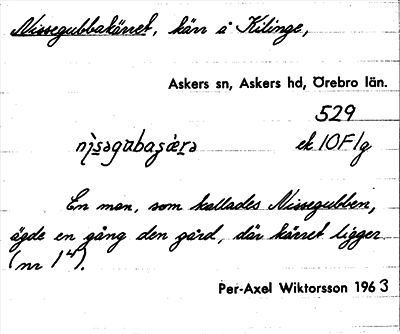 Nissegubbakärret, kärr å Kilinge,
Askers sn, Askers hd, Örebro län.
529
ek 10F1g
En man, som kallades Nissegubben,
ägde en gång den gård, där kärret ligger
(nr 1⁴).
Per-Axel Wiktorsson 1963